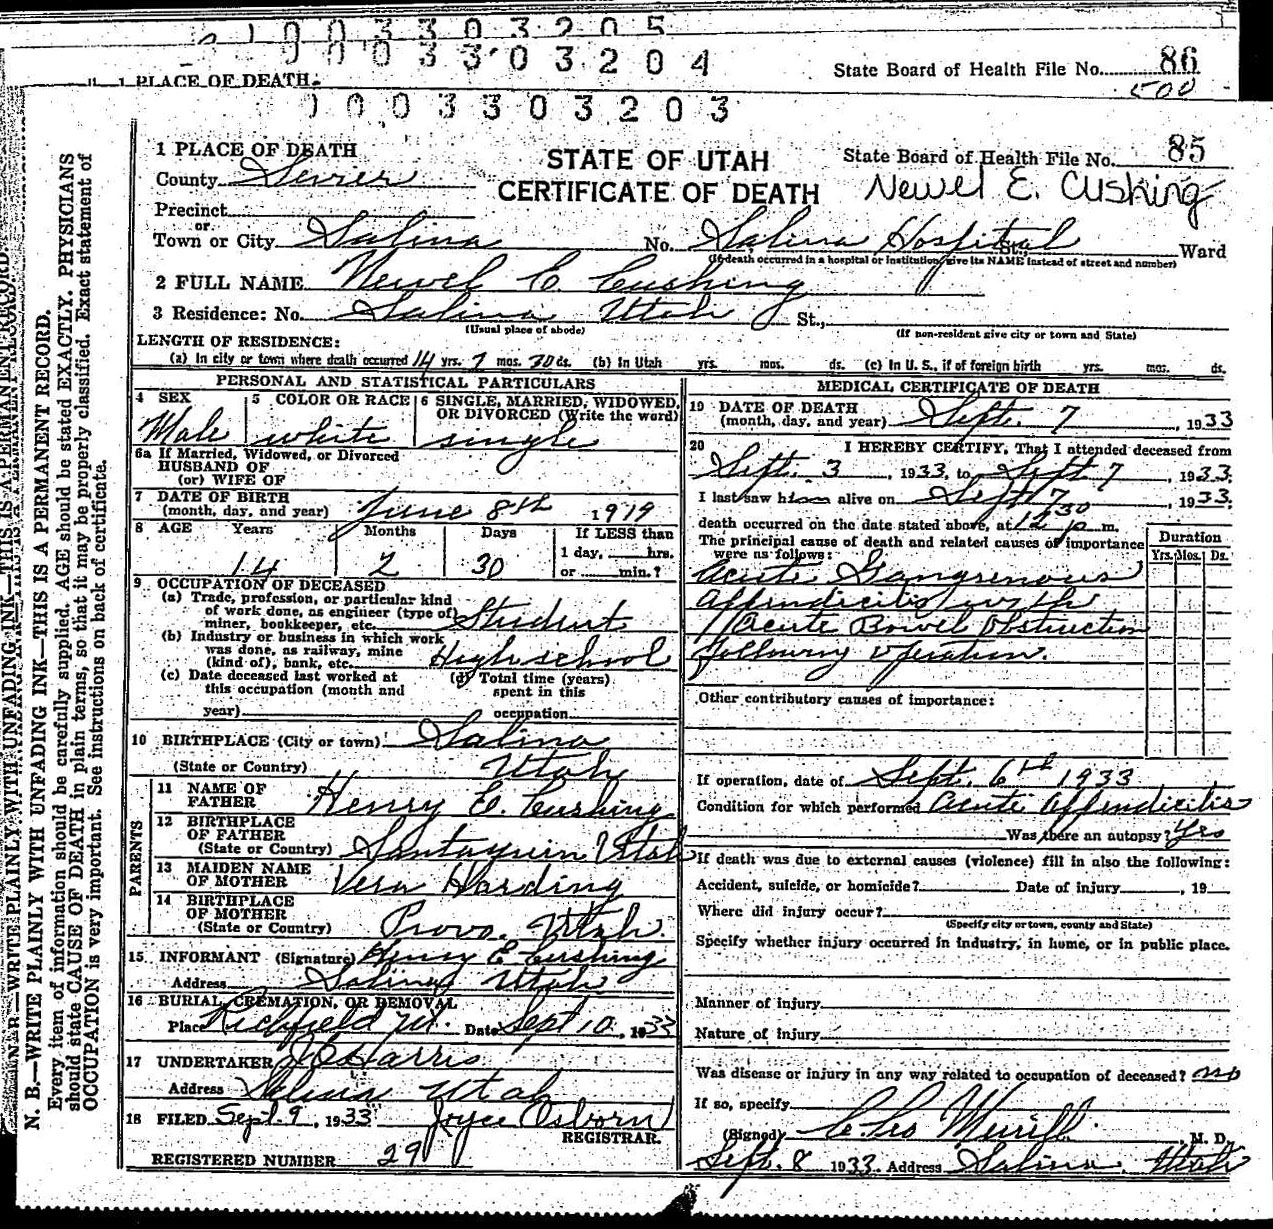 1 0 0 3 3 0 3 2 0 5
0 0 3 3 0 3 2 0 4
State Board of Health File No. 86
500
1 PLACE OF DEATH
1 0 0 3 3 0 3 2 0 3
1 PLACE OF DEATH
STATE OF UTAH
State Board of Health File No. 85
County Sevier
CERTIFICATE OF DEATH
Newel E. Cushing
Precinct
or
Town or City Salina No. Salina Hospital St., Ward
(If death occurred in a hospital or institution, give its NAME instead of street and number)
2 FULL NAME Newel E. Cushing
3 Residence: No. Salina Utah St.,
(Usual place of abode) (If non-resident give city or town and State)
LENGTH OF RESIDENCE:
(a) In city or town where death occurred 14 yrs. 2 mos. 30 ds. (b) In Utah yrs. mos. ds. (c) In U. S., if of foreign birth yrs. mos. ds.
PERSONAL AND STATISTICAL PARTICULARS
4 SEX 5 COLOR OR RACE 6 SINGLE, MARRIED, WIDOWED, OR DIVORCED (Write the word)
Male white single
6a If Married, Widowed, or Divorced
HUSBAND OF
(or) WIFE OF
7 DATE OF BIRTH
(month, day, and year) June 8th 1919
8 AGE Years Months Days If LESS than
1 day, hrs.
14 2 30 or min.?
9 OCCUPATION OF DECEASED
(a) Trade, profession, or particular kind
of work done, as engineer (type of)
miner, bookkeeper, etc. Student
(b) Industry or business in which work
was done, as railway, mine
(kind of), bank, etc. High school
(c) Date deceased last worked at (d) Total time (years)
this occupation (month and spent in this
year) occupation
10 BIRTHPLACE (City or town) Salina
(State or Country) Utah
PARENTS
11 NAME OF
FATHER Henry E. Cushing
12 BIRTHPLACE
OF FATHER
(State or Country) Santaquin Utah
13 MAIDEN NAME
OF MOTHER Vera Harding
14 BIRTHPLACE
OF MOTHER
(State or Country) Provo, Utah.
15 INFORMANT (Signature) Henry E Cushing
Address Salina Utah
16 BURIAL, CREMATION, OR REMOVAL
Place Richfield Ut. Date Sept 10, 1933
17 UNDERTAKER J E Harris
Address Salina Utah
18 FILED Sept. 9, 1933 Joyce Osborn
REGISTRAR.
REGISTERED NUMBER 29
MEDICAL CERTIFICATE OF DEATH
19 DATE OF DEATH
(month, day, and year) Sept. 7, 1933
20 I HEREBY CERTIFY, That I attended deceased from
Sept. 3, 1933, to Sept 7, 1933.
I last saw him alive on Sept 7, 1933.
death occurred on the date stated above, at 12 30 p m.
The principal cause of death and related causes of importance
were as follows:
Duration
Yrs. Mos. Ds.
Acute Gangrenous
Appendicitis with
Acute Bowel Obstruction
following operation.
Other contributory causes of importance:
If operation, date of Sept. 6th 1933
Condition for which performed Acute Appendicitis
Was there an autopsy? Yes
If death was due to external causes (violence) fill in also the following:
Accident, suicide, or homicide? Date of injury, 19
Where did injury occur?
(Specify city or town, county and State)
Specify whether injury occurred in industry, in home, or in public place.
Manner of injury
Nature of injury
Was disease or injury in any way related to occupation of deceased? no
If so, specify
(Signed) M. D.
Sept. 8 1933. Address Salina, Utah
N. B.—WRITE PLAINLY WITH UNFADING INK—THIS IS A PERMANENT RECORD.
Every item of information should be carefully supplied. AGE should be stated EXACTLY. PHYSICIANS
should state CAUSE OF DEATH in plain terms, so that it may be properly classified. Exact statement of
OCCUPATION is very important. See instructions on back of certificate.